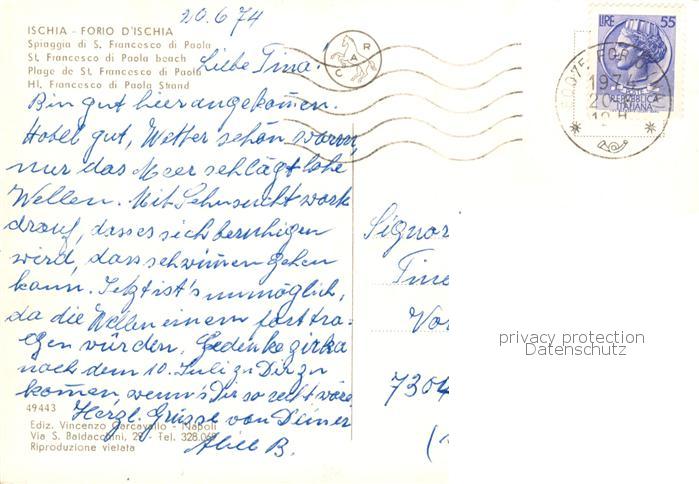 20.6.74
ISCHIA - FORIO D'ISCHIA
Spiaggia di S. Francesco di Paola
St. Francesco di Paola beach
Plage de St. Francesco di Paola
Hl. Francesco di Paola Strand
Liebe Tina!
Bin gut hier angekommen.
Hotel gut, Wetter schön warm,
nur das Meer schlägt hohe
Wellen. Mit Sehnsucht wart
drauf, dass es sich beruhigen
wird, dass schwimmen gehen
kann. Jetzt ist's unmöglich,
da die Wellen einem forttra-
gen würden. Gedenke zirka
nach dem 10. Juli zu Dir zu
kommen, wenn's Dir so recht wäre
Herzl. Grüsse von Deiner
B.
49443
Ediz. Vincenzo Carcavallo - Napoli
Via S. Baldacchini, 29 - Tel. 328.069
Riproduzione vietata
CAR
LIRE 55
REPUBBLICA
ITALIANA
1974
20
Signor
Tine
Vor
7304
privacy protection
Datenschutz